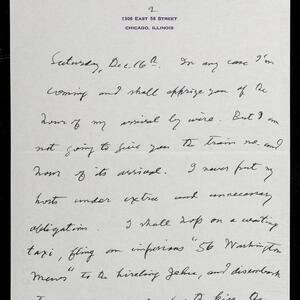 2
1306 EAST 56 STREET
CHICAGO, ILLINOIS
Saturday, Dec. 16th. In any case I'm
coming and shall apprize you of the
hour of my arrival by wire. But I am
not going to give you the train no. and
hour of its arrival. I never put my
hosts under extra and unnecessary
obligations. I shall hop on a waiting
taxi, fling an imperious "56 Washington
Mews" to the hireling Jehu, and disembark